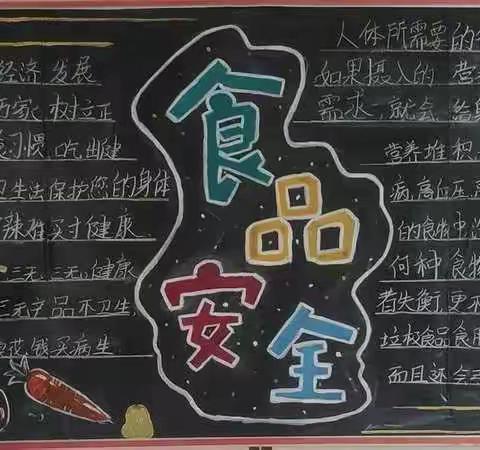 经济发展
树立正
习惯,吃出健
卫生法保护您的身体
辣难买寸健康
一三无,三无,健康
三无产品不卫生,
花钱买病生
食品
安全
人体所需要的
如果摄入的营
需求,就会给
营养堆积
病,高血压,高
的食物中
何种食物
者失衡,更不
垃圾食品食用
而且还会